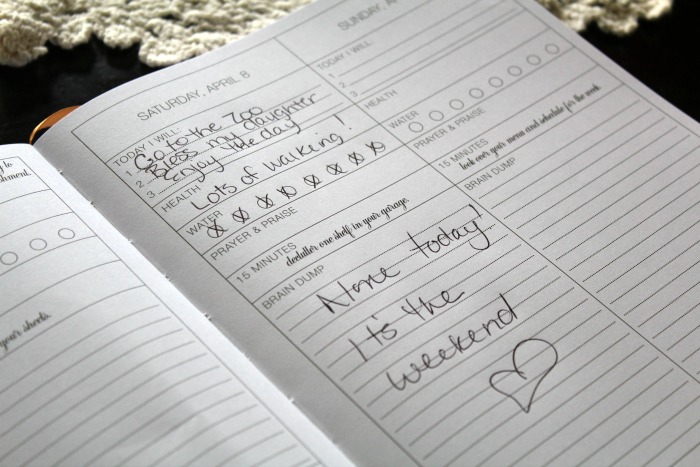 to
shment.
your sheets.
SATURDAY, APRIL 8
TODAY I WILL:
1 Go to the Zoo
2 Bless my daughter
3 Enjoy the day
HEALTH
Lots of walking!
WATER
PRAYER & PRAISE
15 MINUTES declutter one shelf in your garage.
BRAIN DUMP
None today!
It's the
weekend
SUNDAY, A
TODAY I WILL:
1
2
3
HEALTH
WATER
PRAYER & PRAISE
15 MINUTES look over your menu and schedule for the week.
BRAIN DUMP